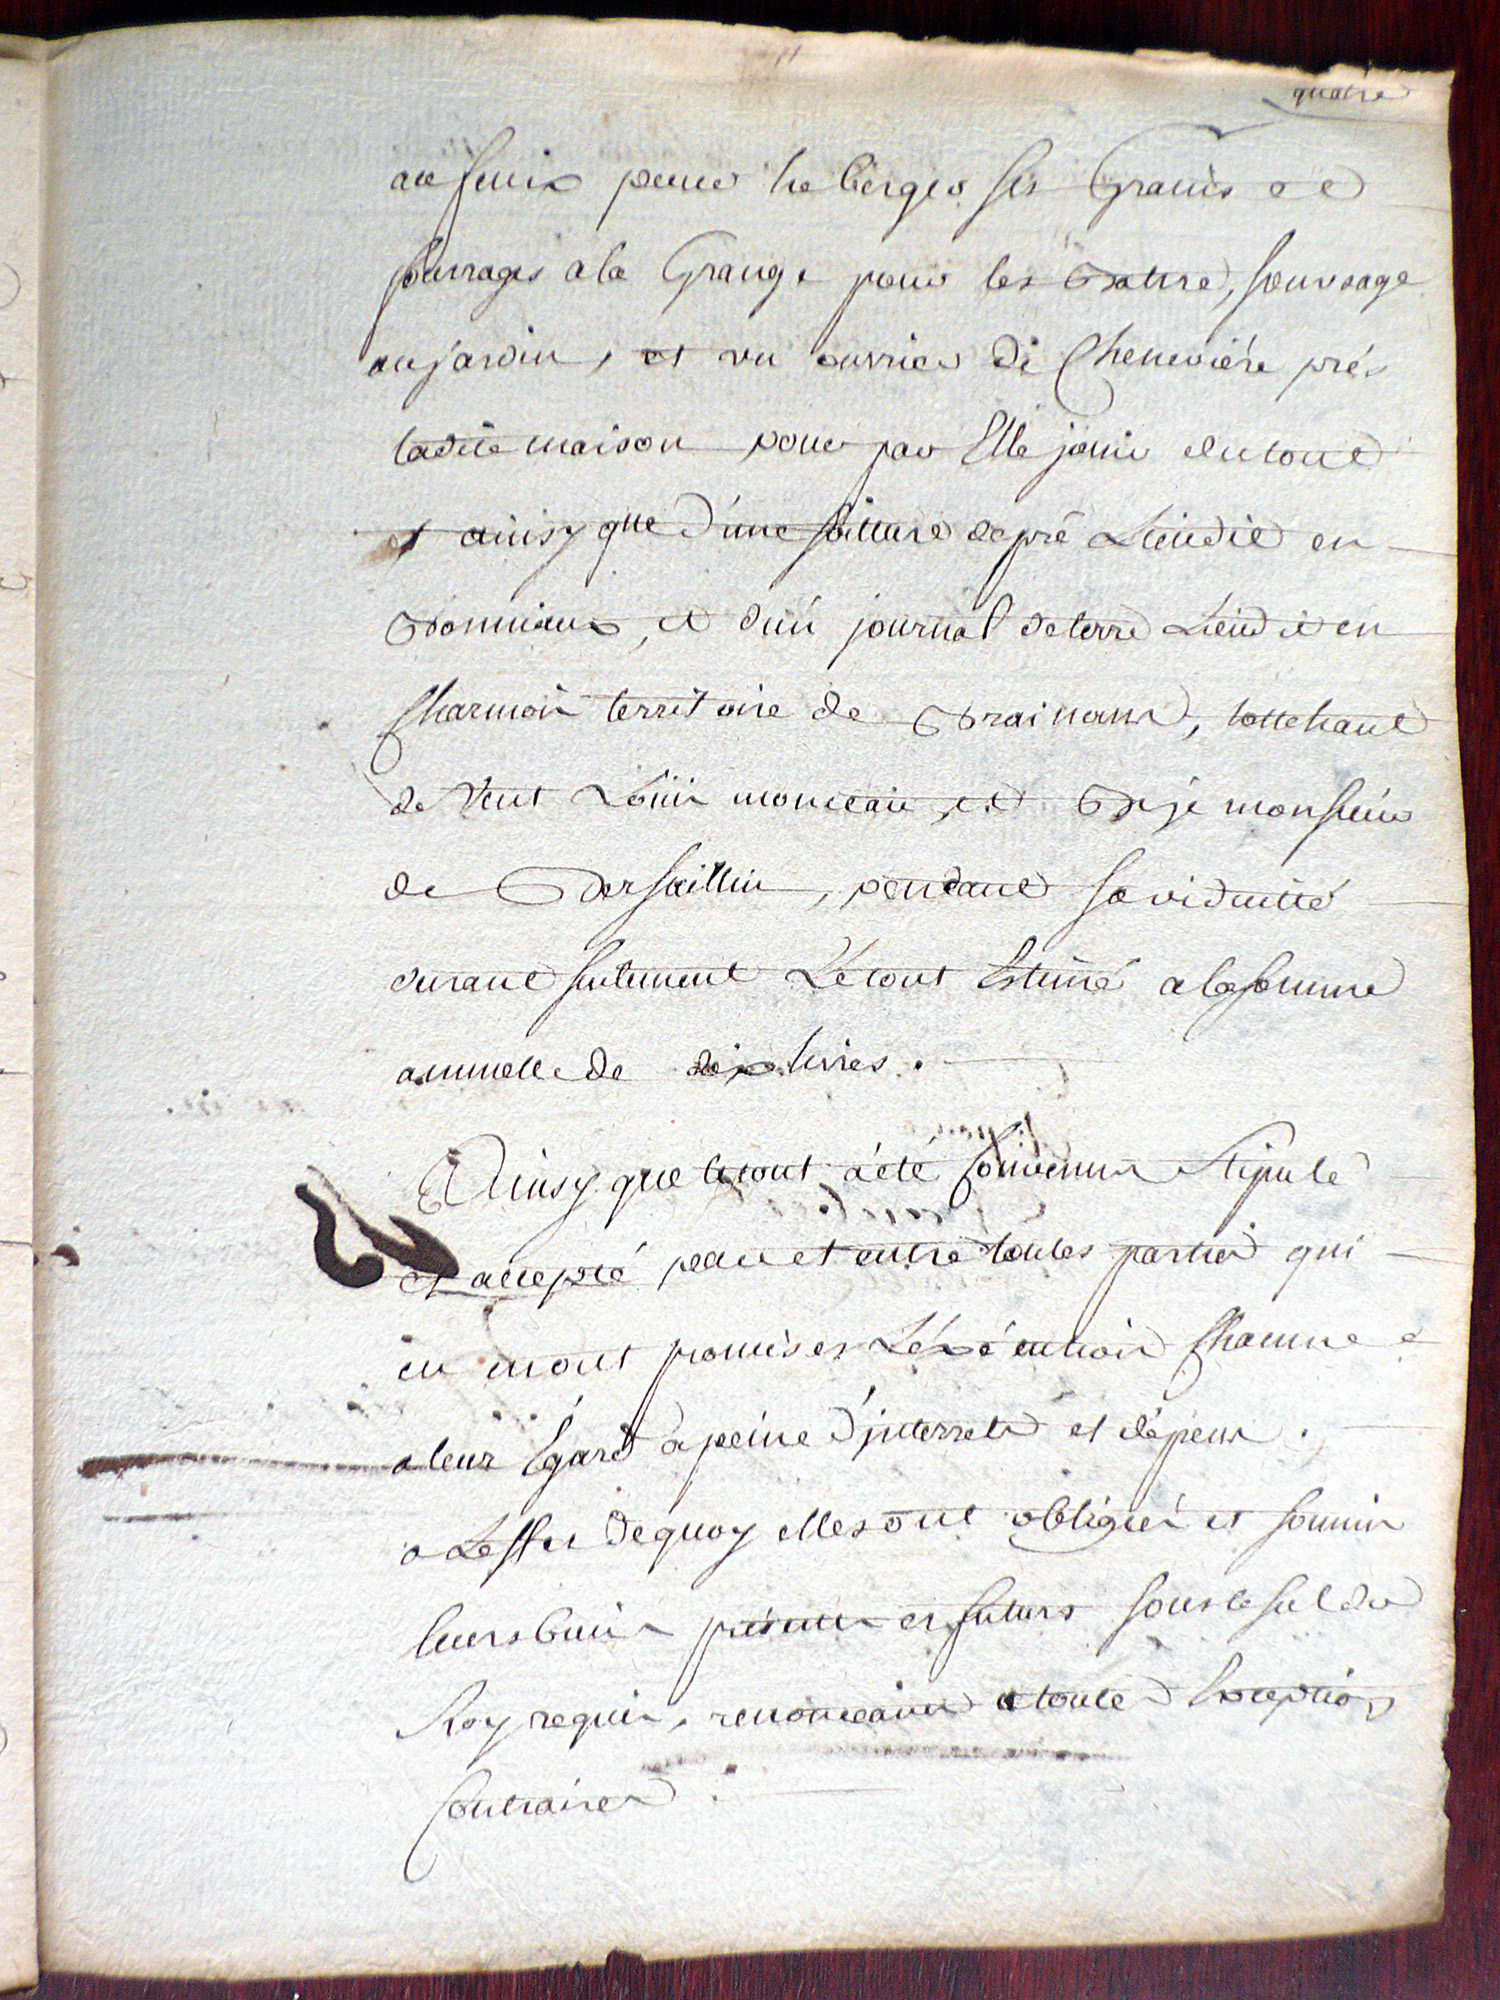 quatre
au fenix pour heberger ses Grains et
fourrages a la Grange pour les Battre, son usage
au jardin, et un ouvrier de Cheneviére prés
ladite maison pour par Elle jouir du tout
et ainsy que d'une faiture de pré Lieudit en
et d'un journal de terre Lieudit en
Charmoin territoire de Brainans, touchant
de Vent Loüis monceau, et Bise monsieur
de Bersaillin, pendant sa viduitté
durant seulement Le tout Estimé a la somme
annuelle de dix livres.
Ainsy que le tout a été Convenus Stipulé
et accepté par et entre toutes parties qui
en mont promises L'éxécution Chacune
a leur Egard à peine d'jnterrets et dépens.
a Leffet de quoy elles ont obligéés et soumis
leurs biens présents et futurs sous le scel du
Roy requis, renonceants a toutes Exceptions
Contraires.